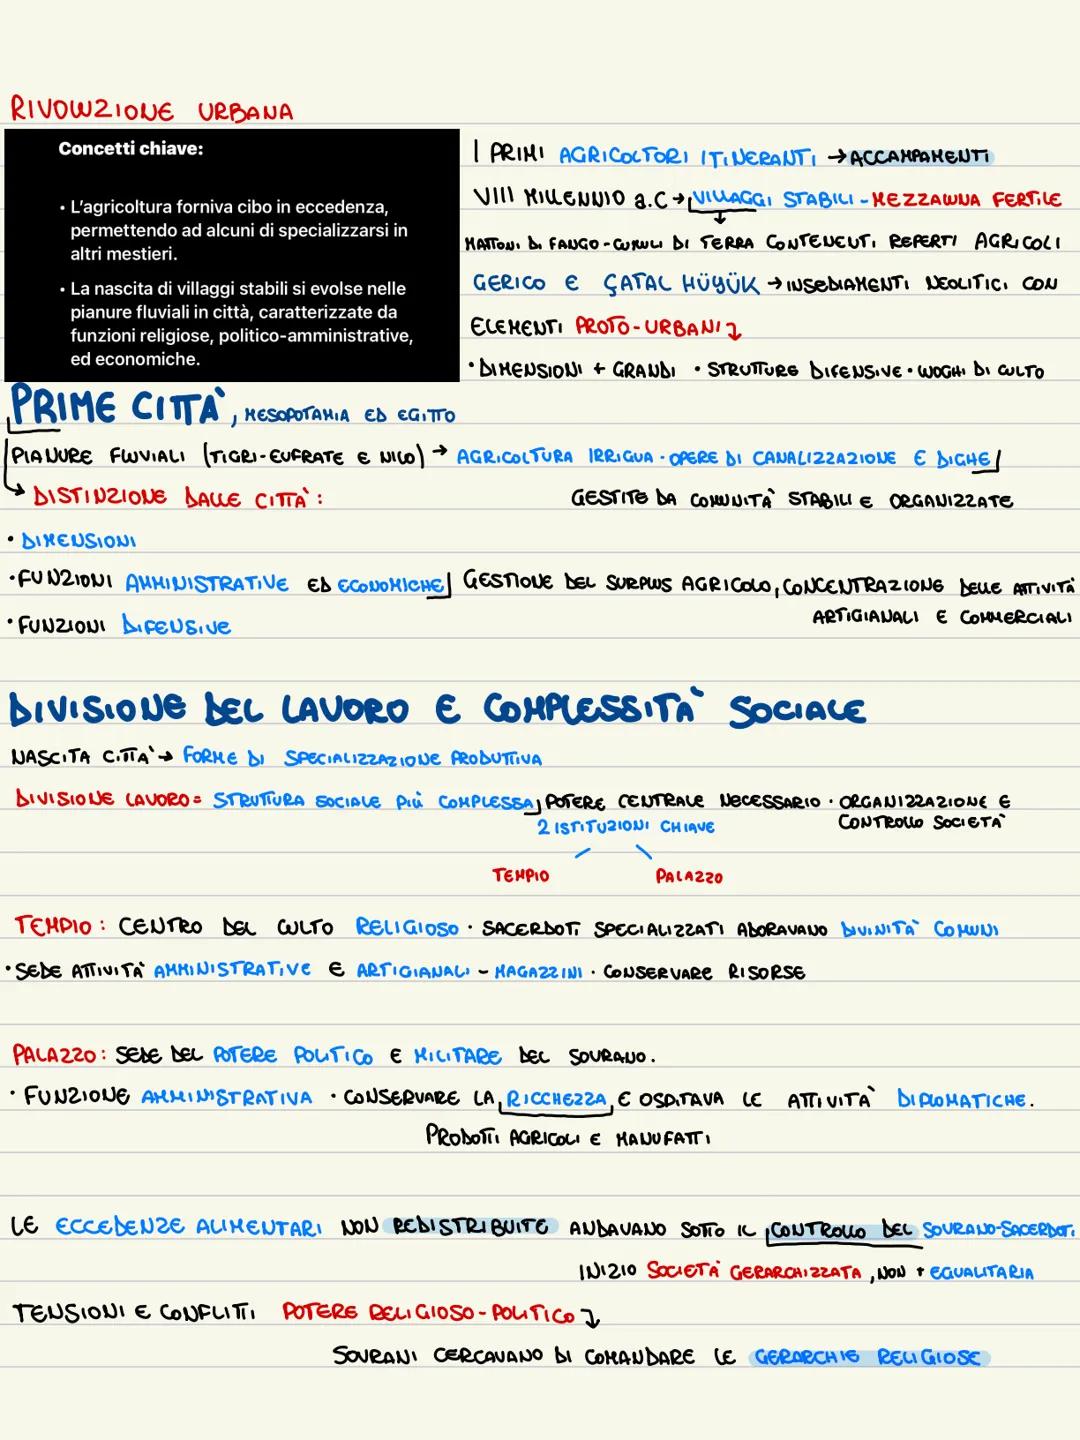 RIVOLUZIONE URBANA
Concetti chiave:
• L'agricoltura forniva cibo in eccedenza,
permettendo ad alcuni di specializzarsi in
altri mestieri.
• La nascita di villaggi stabili si evolse nelle
pianure fluviali in città, caratterizzate da
funzioni religiose, politico-amministrative,
ed economiche.
I PRIMI AGRICOLTORI ITINERANTI → ACCAMPAMENTI
VIII MILLENNIO a.C → VILLAGGI STABILI - MEZZALUNA FERTILE
MATTONI DI FANGO - CUMULI DI TERRA CONTENENTI REPERTI AGRICOLI
GERICO E ÇATAL HÜYÜK → INSEDIAMENTI NEOLITICI CON
ELEMENTI PROTO-URBANI ↴
• DIMENSIONI + GRANDI • STRUTTURE DIFENSIVE • LUOGHI DI CULTO
PRIME CITTÀ, MESOPOTAMIA ED EGITTO
PIANURE FLUVIALI (TIGRI-EUFRATE E NILO) → AGRICOLTURA IRRIGUA • OPERE DI CANALIZZAZIONE E DIGHE
GESTITE DA COMUNITÀ STABILI E ORGANIZZATE
→ DISTINZIONE DALLE CITTÀ:
• DIMENSIONI
• FUNZIONI AMMINISTRATIVE ED ECONOMICHE GESTIONE DEL SURPLUS AGRICOLO, CONCENTRAZIONE DELLE ATTIVITÀ
ARTIGIANALI E COMMERCIALI
• FUNZIONI DIFENSIVE
DIVISIONE DEL LAVORO E COMPLESSITÀ SOCIALE
NASCITA CITTÀ → FORME DI SPECIALIZZAZIONE PRODUTTIVA
DIVISIONE LAVORO = STRUTTURA SOCIALE PIÙ COMPLESSA, POTERE CENTRALE NECESSARIO • ORGANIZZAZIONE E
CONTROLLO SOCIETÀ
2 ISTITUZIONI CHIAVE
TEMPIO PALAZZO
TEMPIO: CENTRO DEL CULTO RELIGIOSO • SACERDOTI SPECIALIZZATI ADORAVANO DIVINITÀ COMUNI
• SEDE ATTIVITÀ AMMINISTRATIVE E ARTIGIANALI - MAGAZZINI • CONSERVARE RISORSE
PALAZZO: SEDE DEL POTERE POLITICO E MILITARE DEL SOVRANO.
• FUNZIONE AMMINISTRATIVA • CONSERVARE LA RICCHEZZA E OSPITAVA LE ATTIVITÀ DIPLOMATICHE.
PRODOTTI AGRICOLI E MANUFATTI
LE ECCEDENZE ALIMENTARI NON REDISTRIBUITE ANDAVANO SOTTO IL CONTROLLO DEL SOVRANO-SACERDOTI
INIZIO SOCIETÀ GERARCHIZZATA, NON + EGUALITARIA
TENSIONI E CONFLITTI POTERE RELIGIOSO-POLITICO ↴
SOVRANI CERCAVANO DI COMANDARE LE GERARCHIE RELIGIOSE